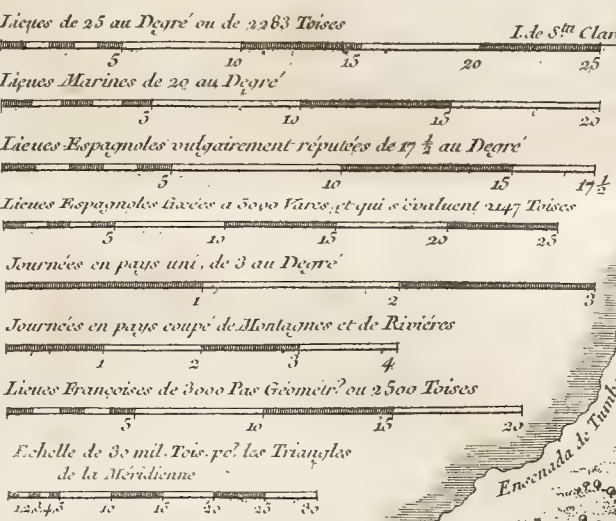 Lieues de 25 au Degré ou de 2283 Toises
I. de S.ta Clar
5 10 15 20 25
Lieues Marines de 20 au Degré
5 10 15 20
Lieues Espagnoles vulgairement réputées de 17 ½ au Degré
5 10 15 17 ½
Lieues Espagnoles fixées a 5000 Vares, et qui s'évaluent 2147 Toises
5 10 15 20 25
Journées en pays uni, de 3 au Degré
1 2 3
Journées en pays coupé de Montagnes et de Riviéres
1 2 3 4
Lieues Françoises de 3000 Pas Géometr.s ou 2500 Toises
5 10 15 20
Echelle de 30 mil. Tois. po.r les Triangles
de la Méridienne
1 2 3 4 5 10 15 20 25 30
Ensenada de Tumb